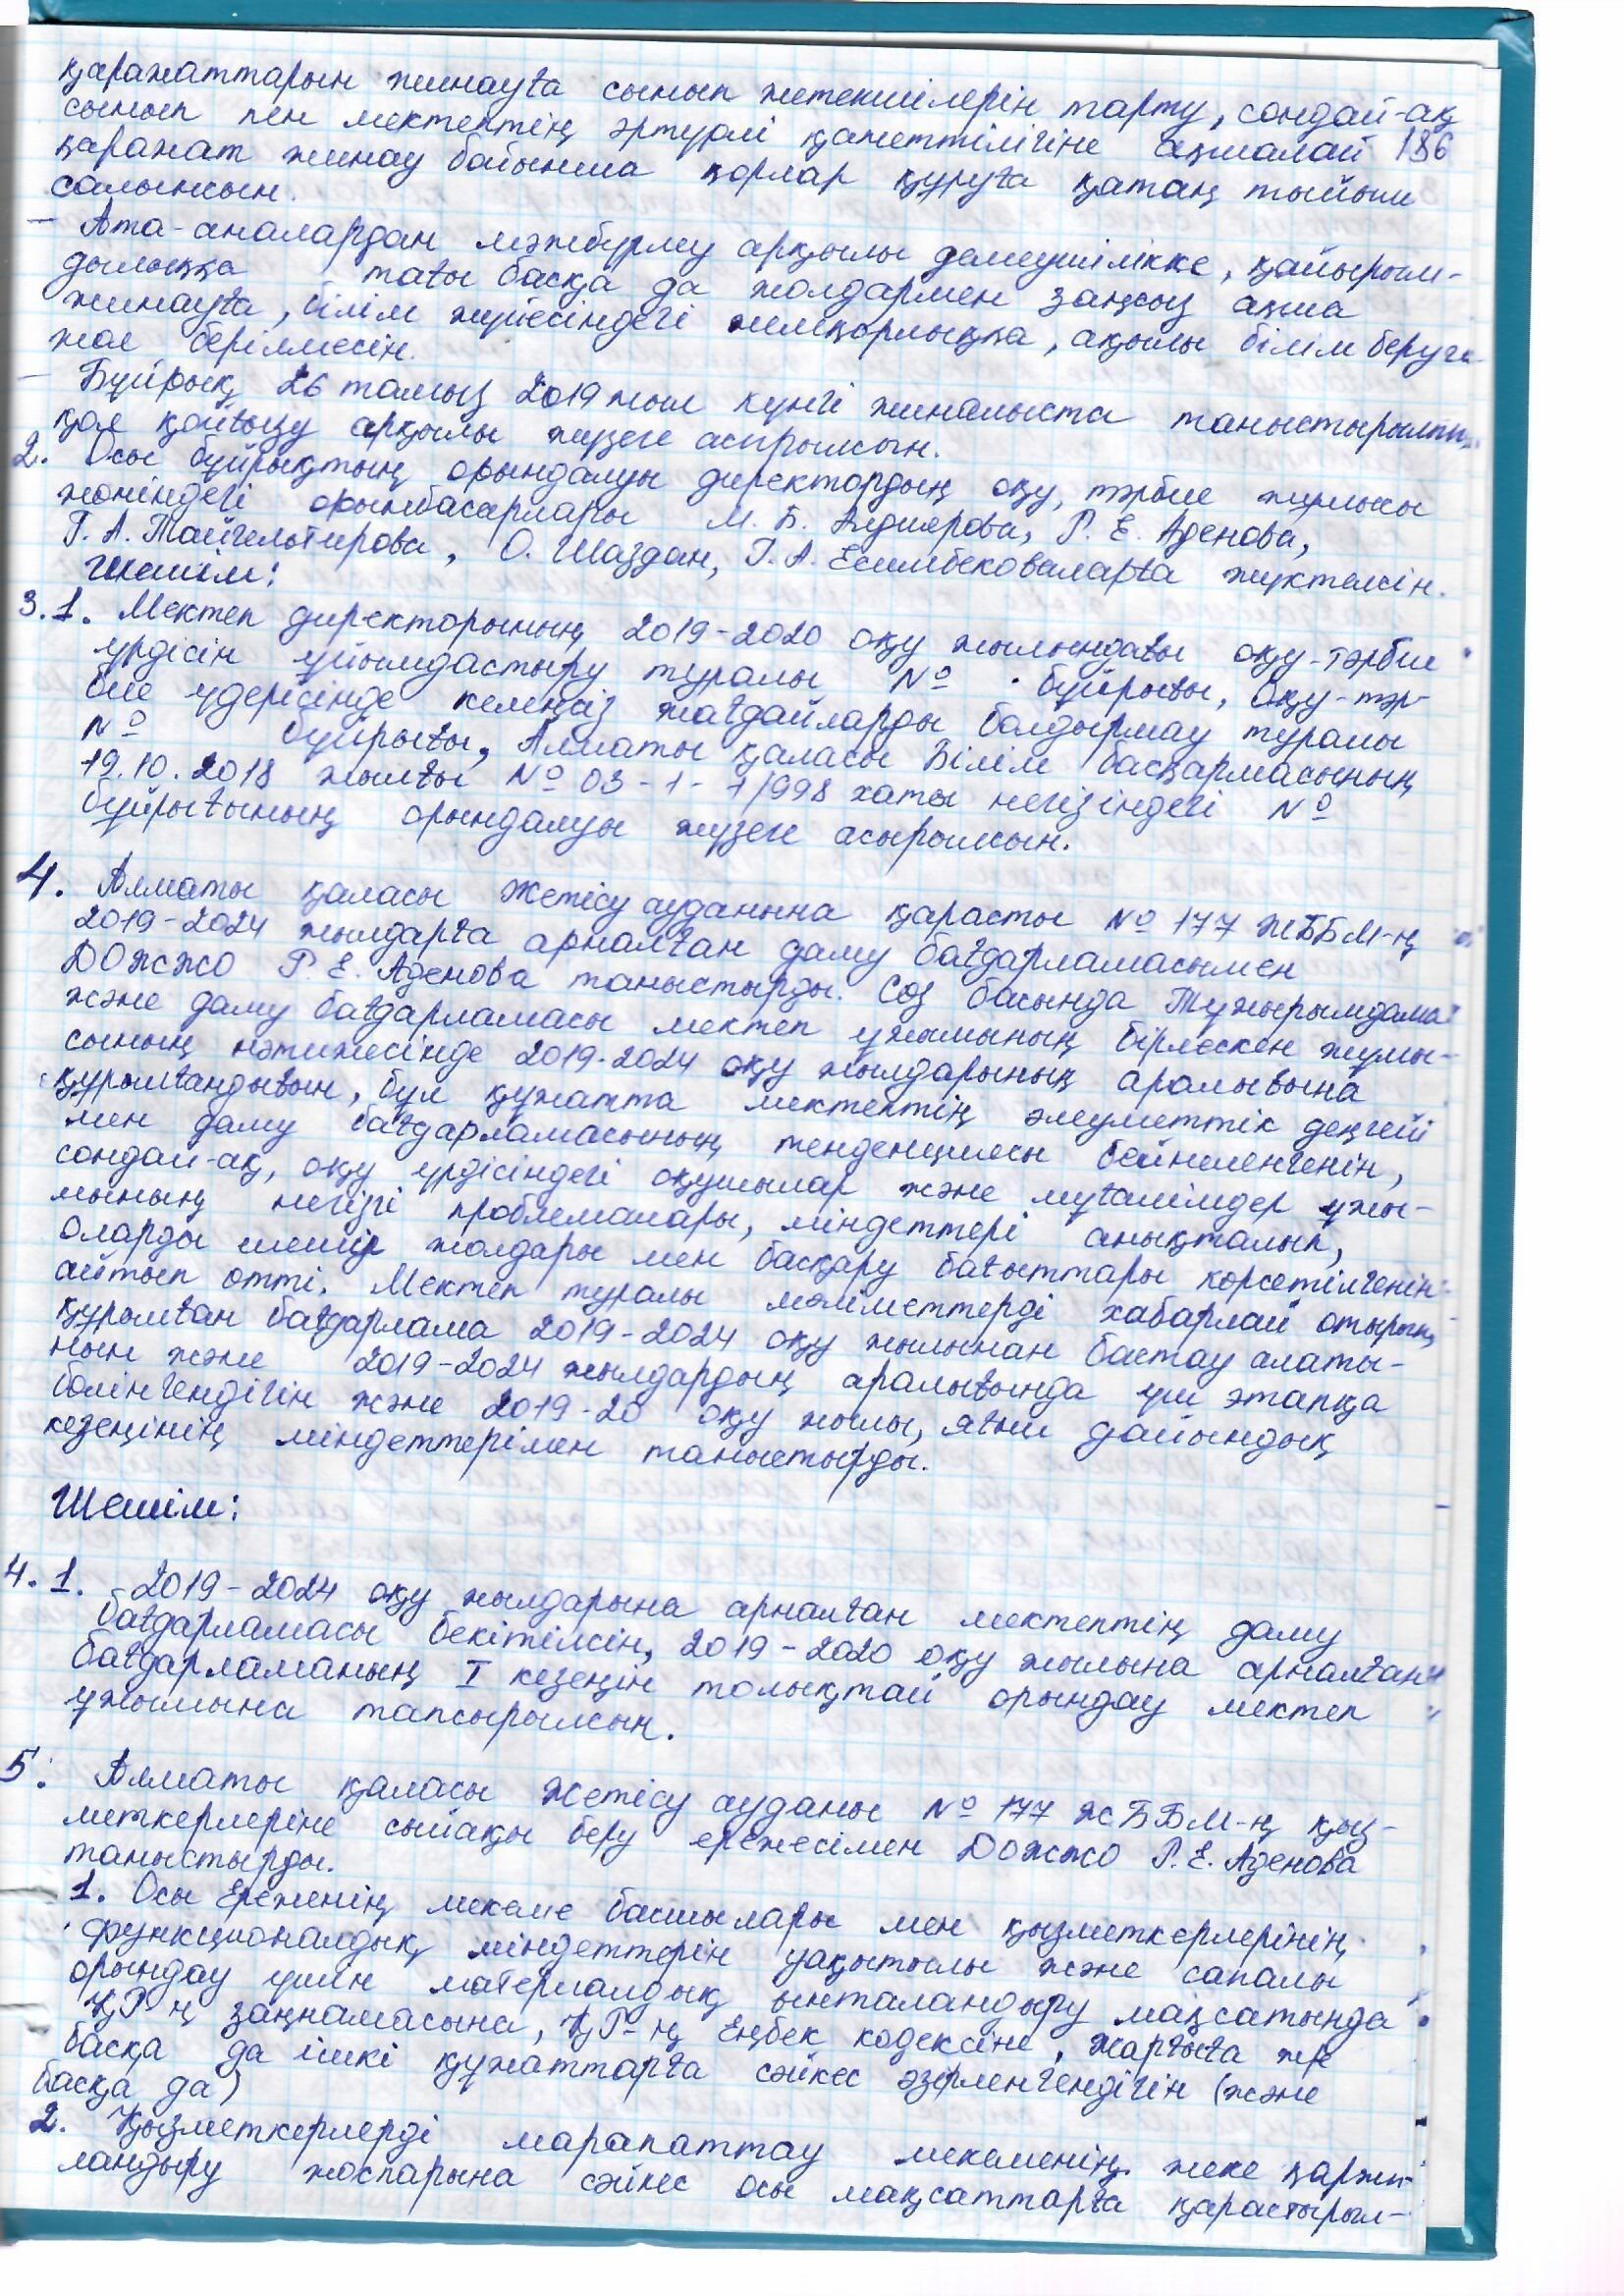 қаражаттарын жинауға сынып жетекшілерін тарту, сондай-ақ
сынып пен мектептің әртүрлі қажеттілігіне ақшалай 186
қаражат жинау бойынша қорлар құруға қатаң тыйым
салынсын.
– Ата-аналардан мәжбүрлеу арқылы демеушілікке, қайырым-
дылыққа тағы басқа да жолдармен заңсыз ақша
жинауға, білім жүйесіндегі жемқорлыққа, ақылы білім беруге
жол берілмесін.
– Бұйрық 26 тамыз 2019 жыл күнгі жиналыста таныстырылып,
қол қойғызу арқылы жүзеге асырылсын.
2. Осы бұйрықтың орындалуы директордың оқу, тәрбие жұмысы
жөніндегі орынбасарлары М. Б. Р. Е. Аденова,
Г. А. О. Шаздан, Г. А. Есимбековаларға жүктелсін.
Шешім:
3.1. Мектеп директорының 2019-2020 оқу жылындағы оқу-тәрбие
үрдісін ұйымдастыру туралы № бұйрығы, Оқу-тәр-
бие үдерісінде келеңсіз жағдайларды болдырмау туралы
№ бұйрығы, Алматы қаласы Білім басқармасының
19.10.2018 жылғы № 03-1-7/998 хаты негізіндегі №
бұйрығының орындалуы жүзеге асырылсын.
4. Алматы қаласы Жетісу ауданына қарасты № 177 ЖББМ-ң
2019-2024 жылдарға арналған даму бағдарламасымен
ДОЖЖО Р. Е. Аденова таныстырды. Сөз басында Тұжырымдама
және даму бағдарламасы мектеп ұжымының бірлескен жұмы-
сының нәтижесінде 2019-2024 оқу жылдарының аралығына
құрылғандығын, бұл құжатта мектептің әлеуметтік деңгейі
мен даму бағдарламасының тенденциясы бейнеленгенін,
сондай-ақ, оқу үрдісіндегі оқушылар және мұғалімдер ұжы-
мының негізгі проблемалары, міндеттері анықталып,
оларды шешу жолдары мен басқару бағыттары көрсетілгенін
айтып өтті. Мектеп туралы мәліметтерді хабарлай отырып,
құрылған бағдарлама 2019-2024 оқу жылынан бастау алаты-
нын және 2019-2024 жылдардың аралығында үш этапқа
бөлінгендігін және 2019-20 оқу жылы, яғни дайындық
кезеңінің міндеттерімен таныстырды.
Шешім:
4.1. 2019-2024 оқу жылдарына арналған мектептің даму
бағдарламасы бекітілсін, 2019-2020 оқу жылына арналған
бағдарламаның I кезеңін толықтай орындау мектеп
ұжымына тапсырылсын.
5. Алматы қаласы Жетісу ауданы № 177 ЖББМ-ң қыз-
меткерлеріне сыйақы беру ережесімен ДОЖЖО Р. Е. Аденова
таныстырды.
1. Осы Ереженің мекеме басшылары мен қызметкерлерінің
функционалдық міндеттерін уақытылы және сапалы
орындау үшін материалдық ынталандыру мақсатында
ҚР-ң заңнамасына, ҚР-ң Еңбек кодексіне, Жарғыға ж/е
басқа да ішкі құжаттарға сәйкес әзірленгендігін (және
басқа да)
2. Қызметкерлерді марапаттау мекеменің жеке қаржы-
ландыру жоспарына сәйкес осы мақсаттарға қарастырыл-